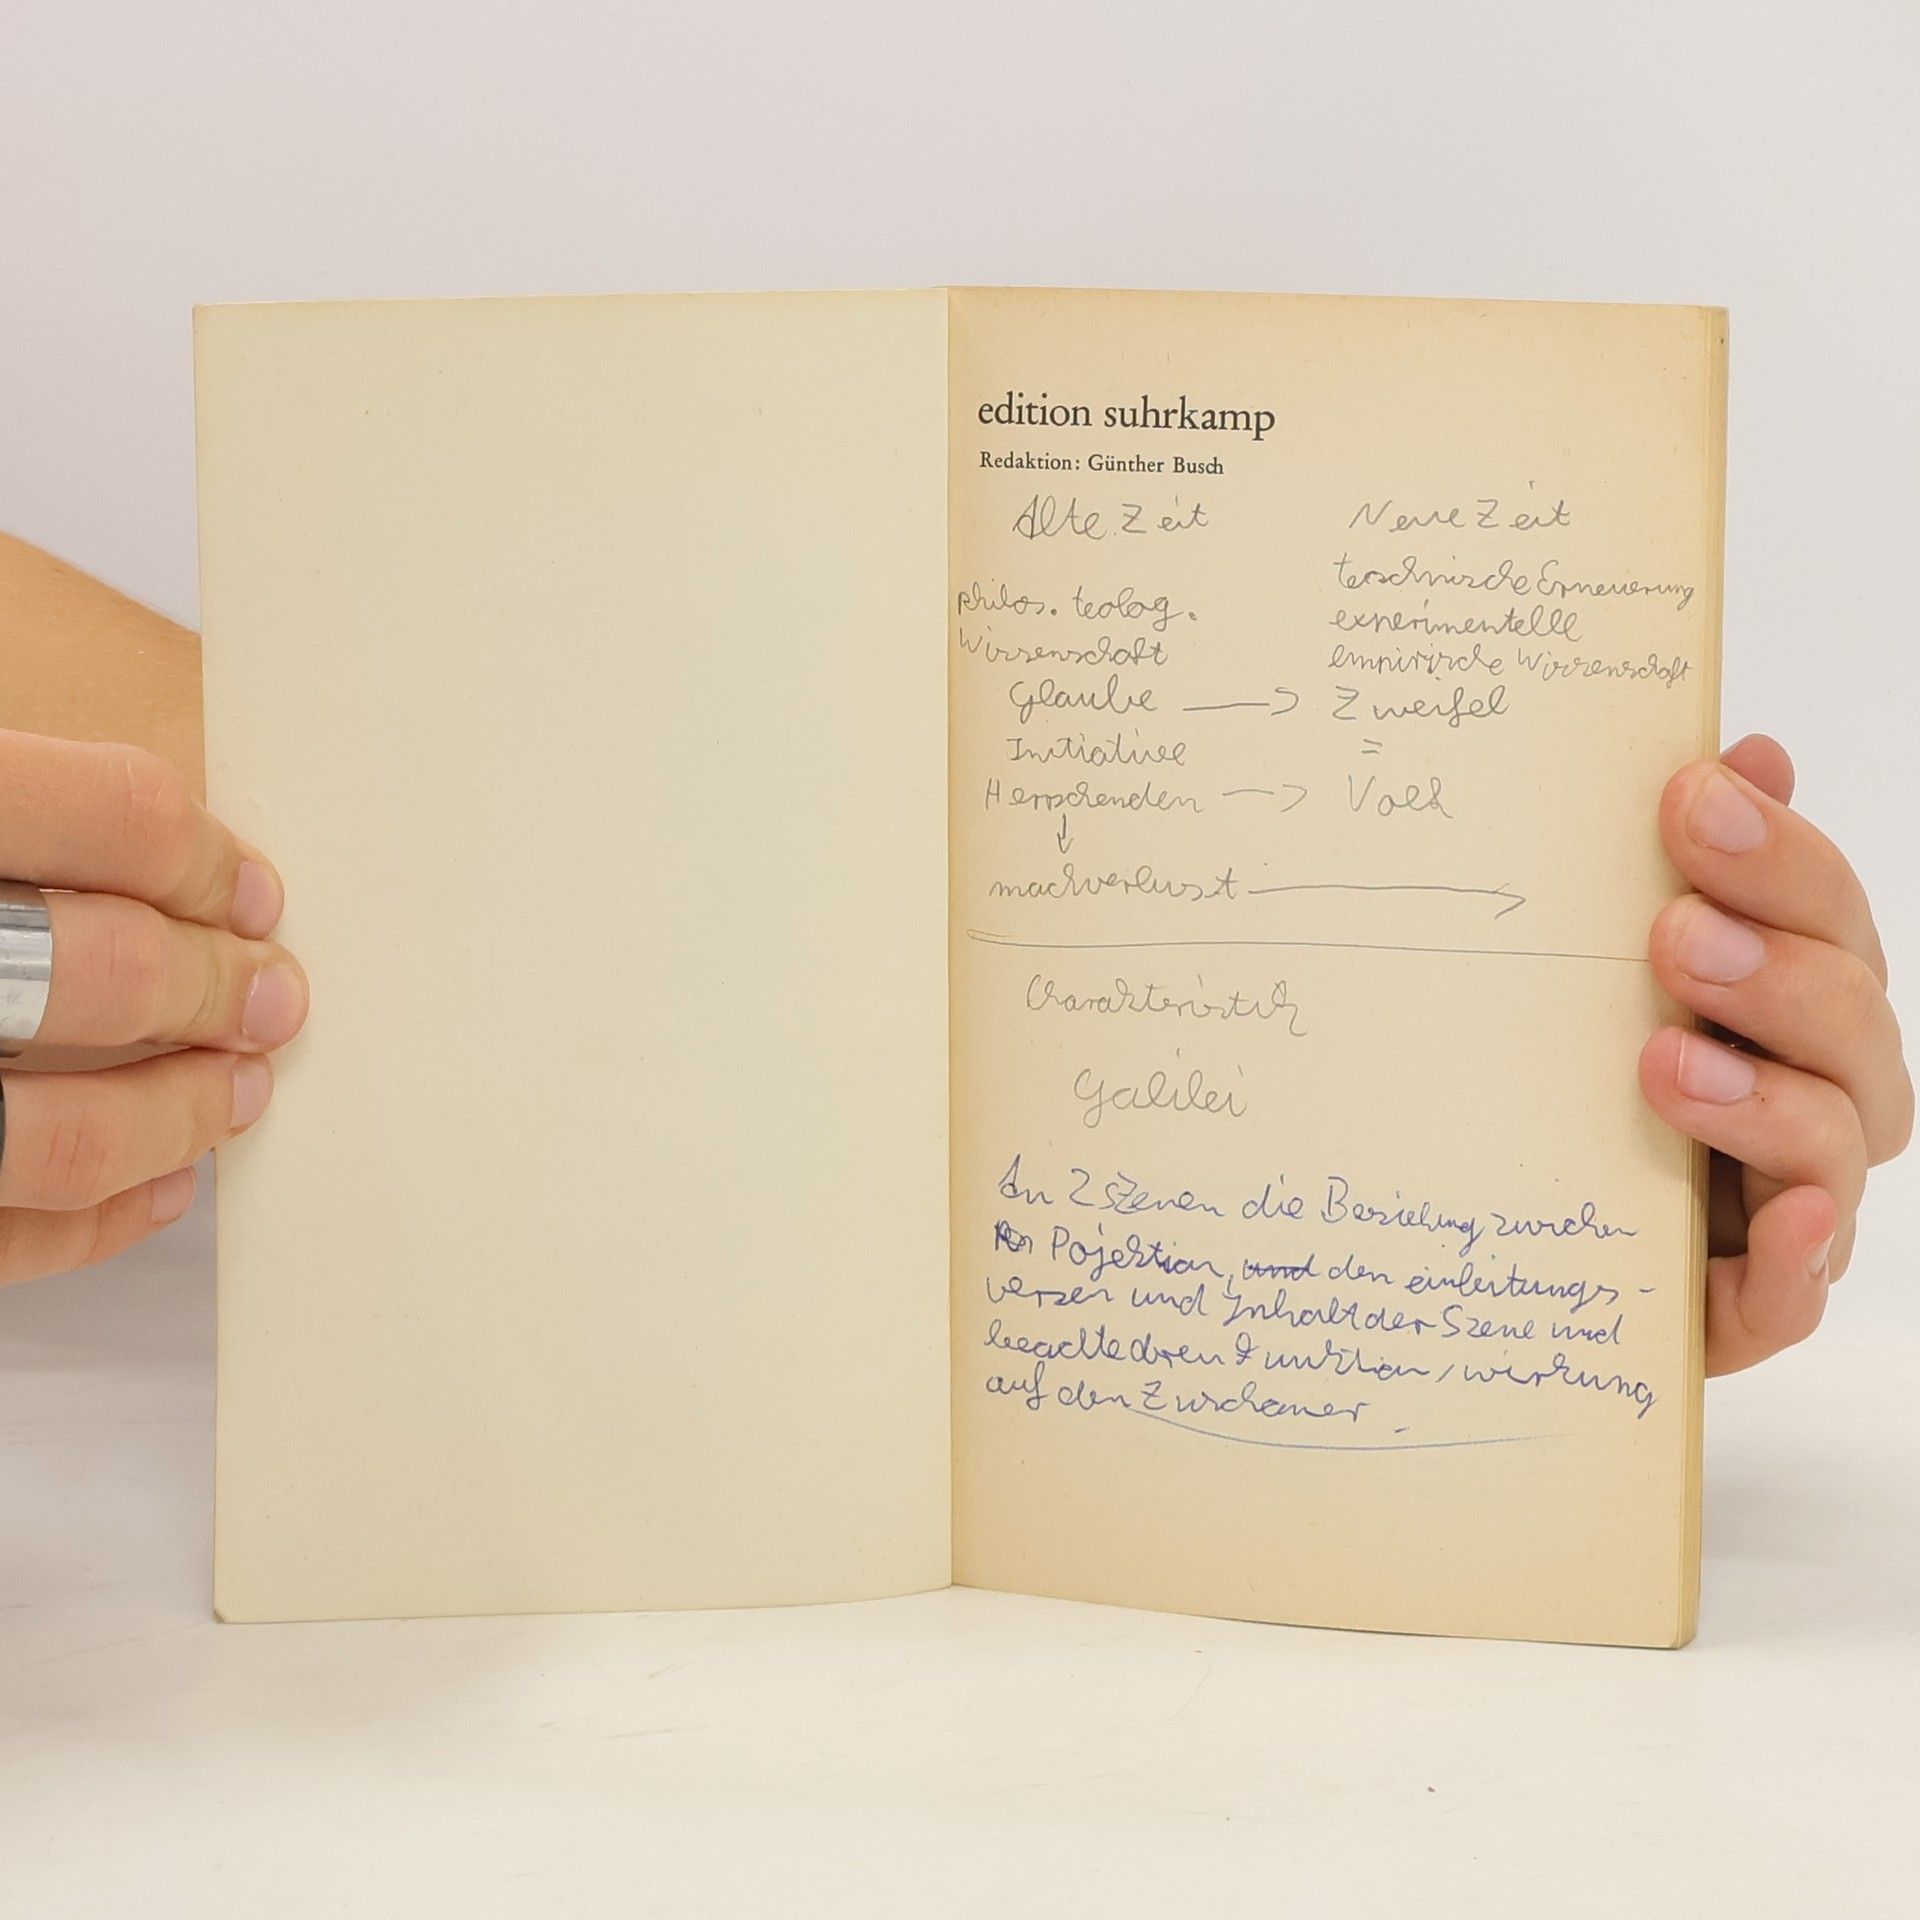 edition suhrkamp
Redaktion: Günther Busch
Alte Zeit Neue Zeit
philos. teolog. teschnische Erneuerung
Wissenschaft experimentelle
empirische Wissenschaft
Glaube → Zweifel
Initiative =
Herrschenden → Volk
↓
machverlust →
Charakteristik
Galilei
An 2 Szenen die Beziehung zwischen
Pojektion, und den einleitungs-
versen und Inhalt der Szene und
beachte deren Funktion/wirkung
auf den Zuschauer.